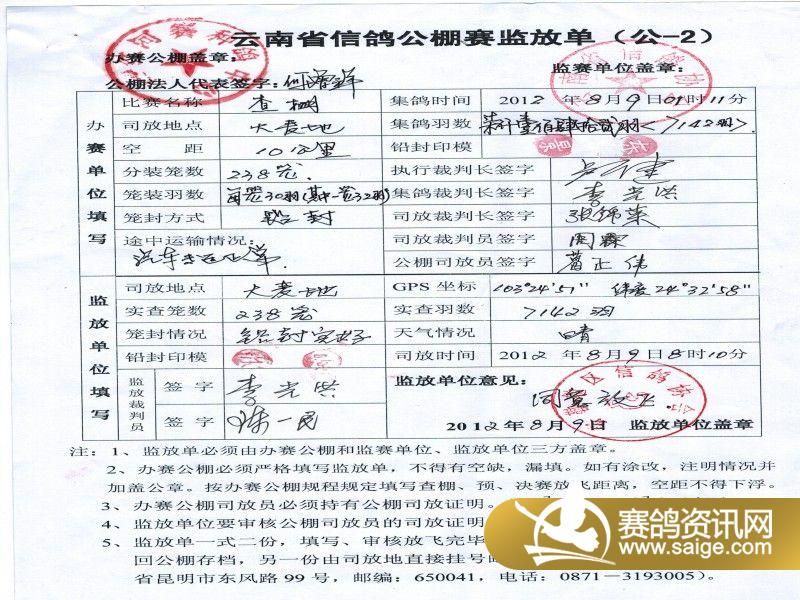 云南省信鸽公棚赛监放单（公-2）
办赛公棚盖章：
监赛单位盖章：
公棚法人代表签字：
办赛单位填写
比赛名称 查棚 集鸽时间 2012年8月9日01时11分
司放地点 大麦地 集鸽羽数 柒仟壹佰肆拾贰羽<7142羽>
空距 10公里 铅封印模
分装笼数 238笼. 执行裁判长签字
笼装羽数 每笼30羽(其中一笼32羽) 集鸽裁判长签字 李光洪
笼封方式 铅封 司放裁判长签字 张锦荣
途中运输情况： 司放裁判员签字 周霖
汽车 公棚司放员签字 葛正伟
监放单位填写
司放地点 大麦地 GPS 坐标 103°24′51″ 纬度24°32′58″
实查笼数 238笼 实查羽数 7142羽
笼封情况 铅封完好 天气情况 晴
铅封印模 司放时间 2012年8月9日8时10分
监放裁判员
签字 李光洪 监放单位意见：
签字 陈一民 同意放飞.
2012年8月9日 监放单位盖章
注：1、监放单必须由办赛公棚和监赛单位、监放单位三方盖章。
2、办赛公棚必须严格填写监放单，不得有空缺，漏填。如有涂改，注明情况并
加盖公章。按办赛公棚规程规定填写查棚、预、决赛放飞距离，空距不得下浮。
3、办赛公棚司放员必须持有公棚司放证明。
4、监放单位要审核公棚司放员的司放证明
5、监放单一式二份，填写、审核放飞完毕
回公棚存档，另一份由司放地直接挂号
省昆明市东风路 99 号，邮编：650041，电话：0871—3193005）。
赛鸽资讯网
www.saige.com